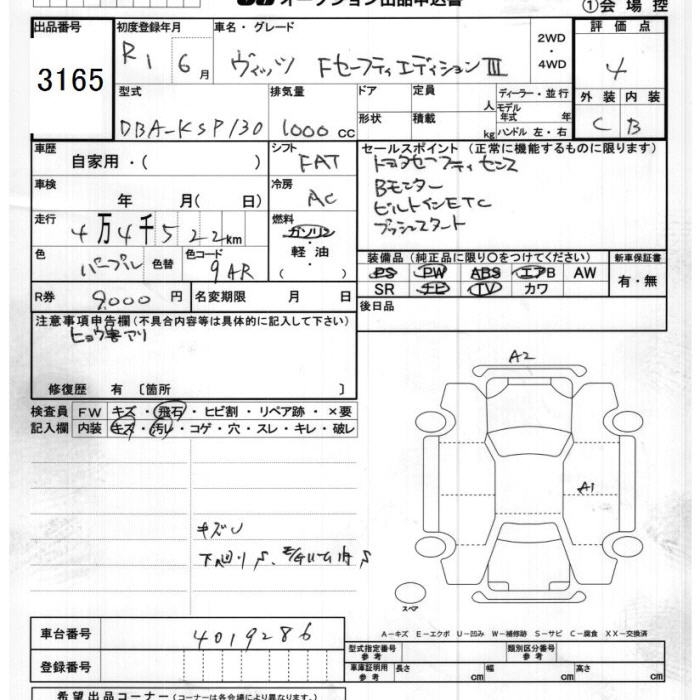 オークション出品申込書 ①会場控
出品番号 3165
初度登録年月 R1 6月
車名・グレード ヴィッツ Fセーフティエディション III
2WD・4WD
評価点 4
外装 C 内装 B
型式 DBA-KSP130
排気量 1000 cc
ドア 形状
定員 人 積載 kg
ディーラー・並行
モデル年式 年
ハンドル 左・右
車歴 自家用・( )
シフト FAT
車検 年 月( 日)
冷房 AC
走行 4万4千522km
燃料 ガソリン・軽油・( )
色 パープル 色替 色コード 9AR
R券 9,000 円 名変期限 月 日
セールスポイント (正常に機能するものに限ります)
トヨタセーフティセンス
Bモニター
ビルトインETC
プッシュスタート
装備品 (純正品に限り○をつけてください) 新車保証書
PS PW ABS エアB AW 有・無
SR ナビ TV カワ
後日品
注意事項申告欄 (不具合内容等は具体的に記入して下さい)
ヒョウ害アリ
修復歴 有 〔箇所 〕
検査員 FW キズ・飛石・ヒビ割・リペア跡・×要
記入欄 内装 キズ・汚レ・コゲ・穴・スレ・キレ・破レ
A2
A1
キズU
スペア
A−キズ E−エクボ U−凹み W−補修跡 S−サビ C−腐食 XX−交換済
車台番号 4019286
登録番号
型式指定番号 参考 類別区分番号 参考
車庫証明用 参考 長さ cm 幅 cm 高さ cm
希望出品コーナー (コーナーは各会場により異なります。)